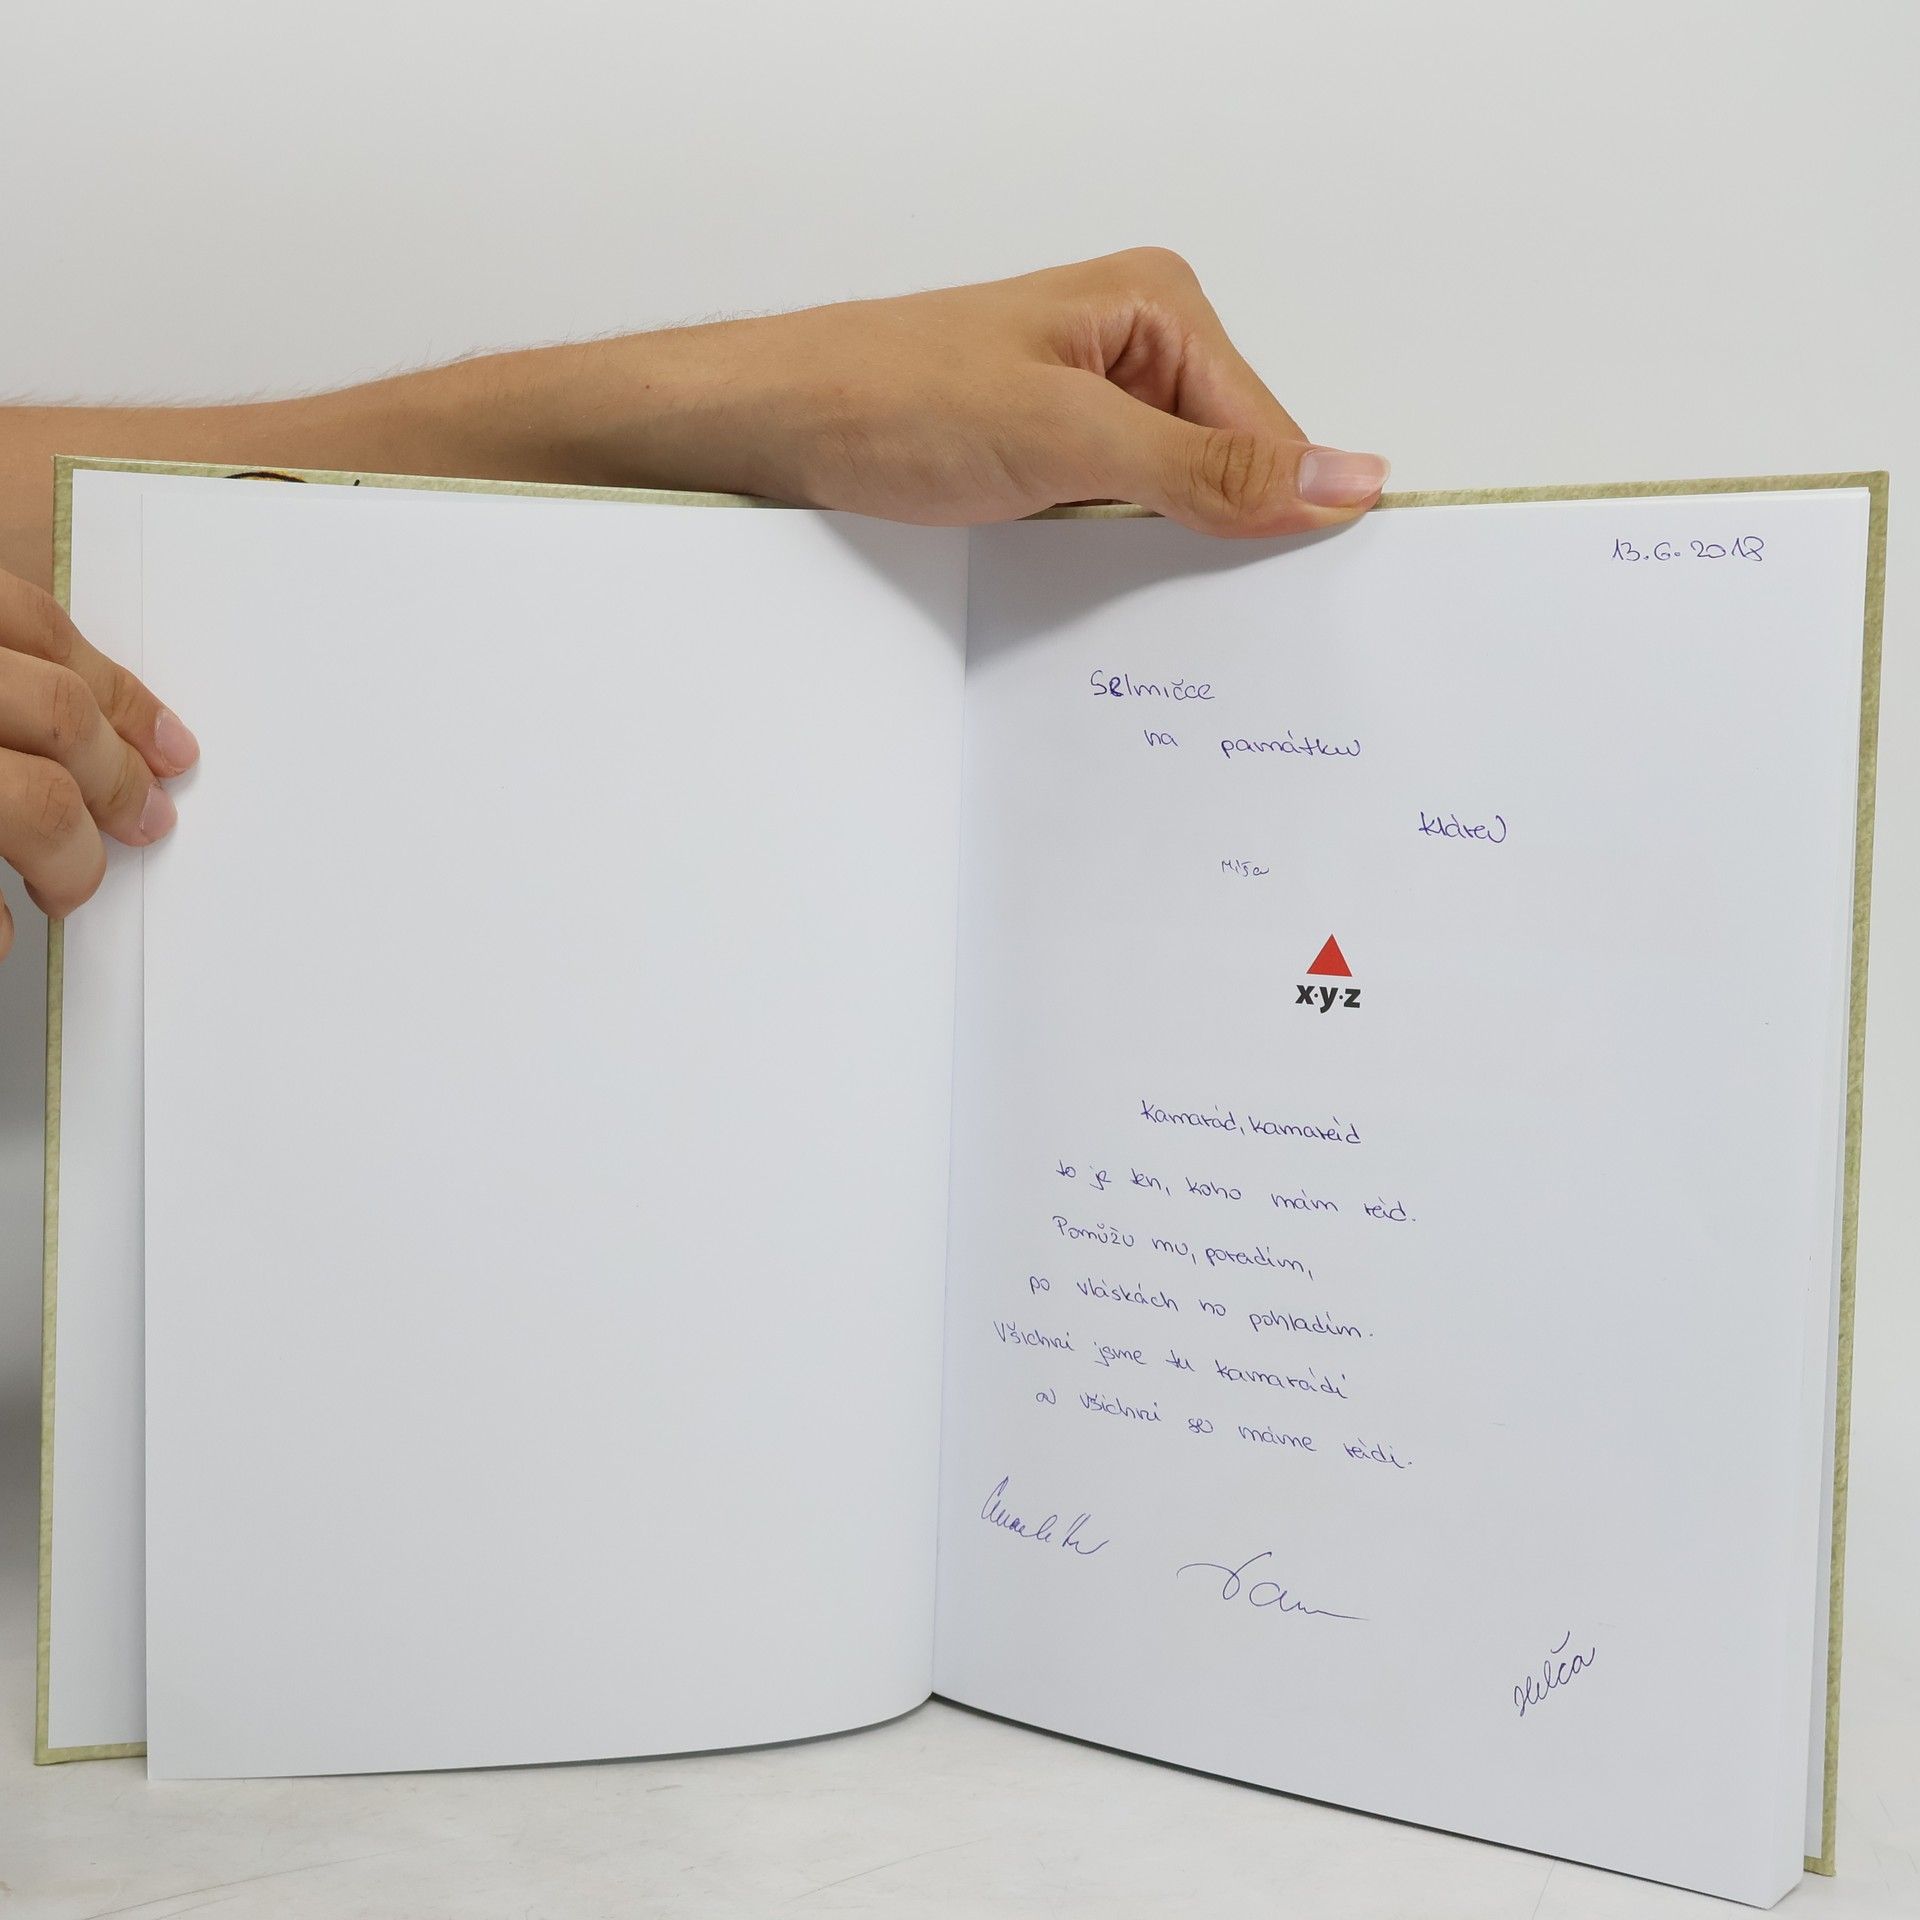 13.6.2018
Selmičce
na památku
Klárev
Míša
x·y·z
Kamarád, kamarád
to je ten, koho mám rád.
Pomůžu mu, poradím,
po vláskách ho pohladím.
Všichni jsme tu kamarádi
a všichni se máme rádi.
Helča